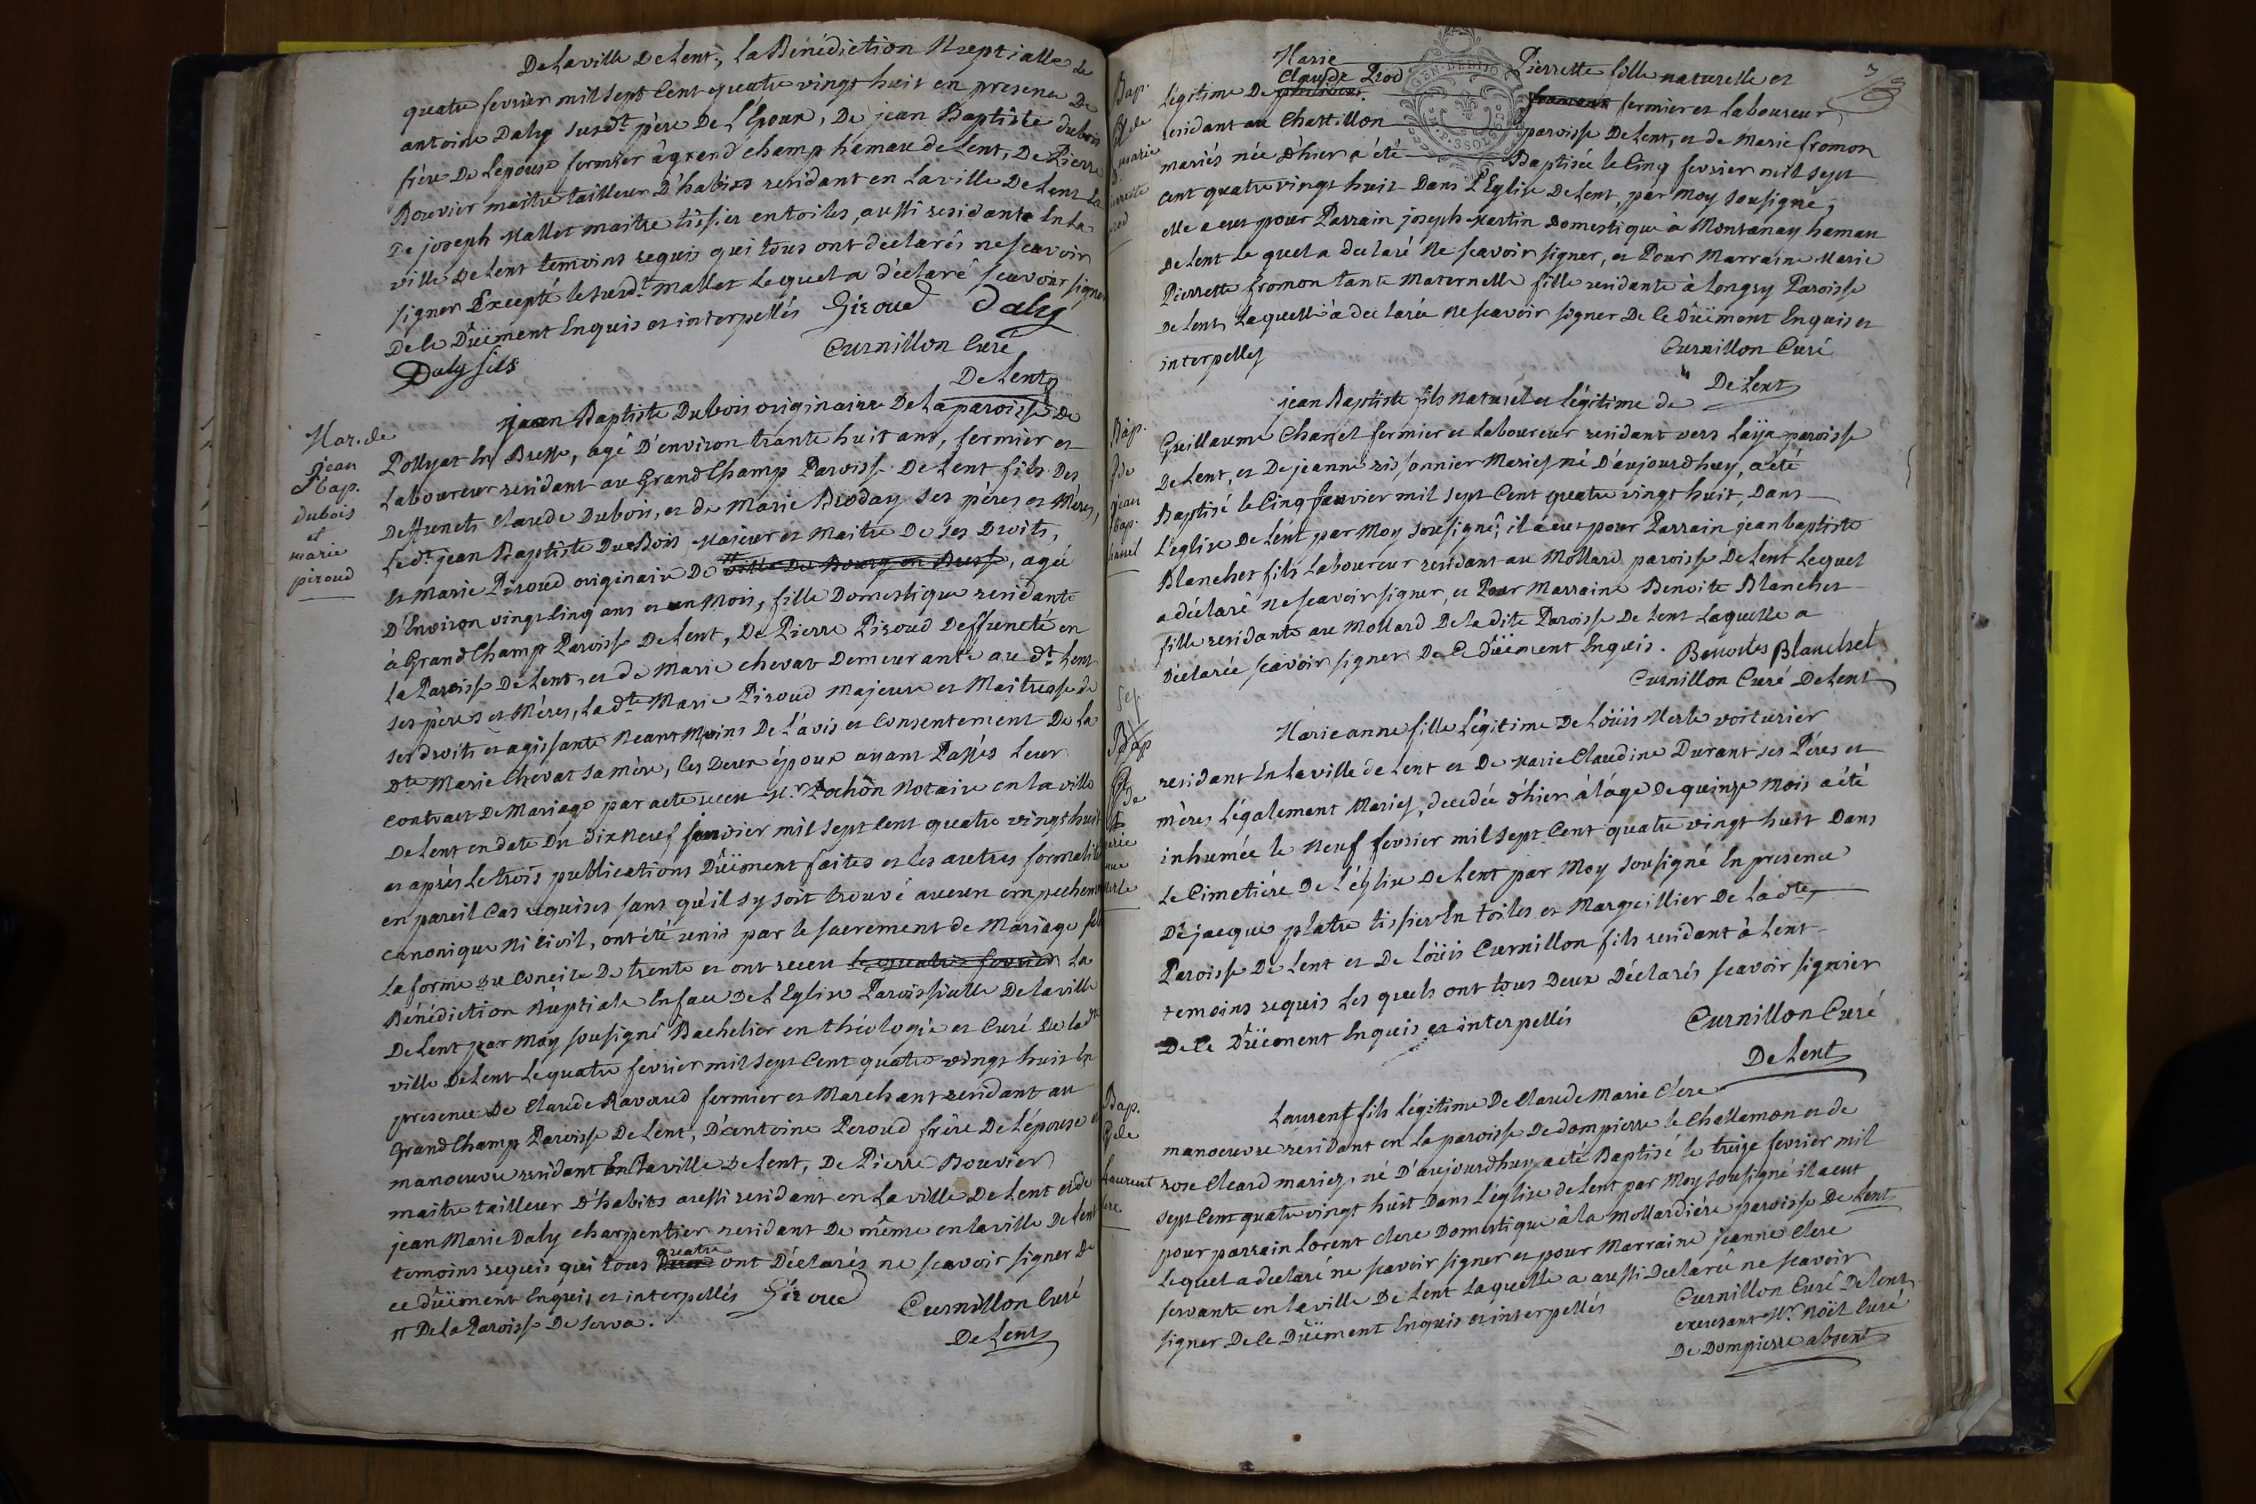 De la ville De Lent, la Bénédiction Nuptialle Le
quatre fevrier mil sept Cent quatre vingt huit en presence De
antoine Daly susdt. père De L'Epoux, De jean Baptiste dubois
frère De Lepouse fermier à grand champ hameau de Lent, De Pierre
Bouvier maitre tailleur D'habits residant en La ville De Lent
De joseph Mallet maitre tissier en toiles, aussi residante En La
ville De Lent temoins requis qui tous ont declarés ne scavoir
signer Excepté le susdt. Mallet Lequel a déclaré scavoir signer
De Ce Dûëment Enquis et interpellés Giroud Daly
Daly fils Curnillon Curé
De Lent
Mar. de
jean
Bap.
dubois
et
marie
piroud
jean Baptiste Dubois originaire De La paroisse De
Pollyat En Bresse, agé D'environ trante huit ans, fermier et
Laboureur residant au Grand Champ Paroisse De Lent fils Des
Deffuncts Claude Dubois, et de Marie Broday ses pères et Mères,
Le dt. jean Baptiste DuBois Majeur et Maitre De ses Droits,
et Marie Piroud originaire De # ville De Bourg en Bresse, agée
D'Environ vingt Cinq ans et un Mois, fille Domestique residante
à Grand Champ Paroisse De Lent, De Pierre Piroud Deffuncté en
La Paroisse De Lent, et de Marie chevat Demeurante au dt. Lent
ses pères et Mères, La dte. Marie Piroud Majeure et Maitresse de
ses droits et agissante Neant Moins De L'avis et Consentement De La
dte. Marie Chevat sa mère, Ces Deux époux ayant Passés Leur
Contract De Mariage par acte receu Mr. Pochon Notaire en La ville
De Lent en date Du Dix Neuf janvier mil sept Cent quatre vingt huit
et après Le trois publications Dûëment faites et les autres formalités
en pareil Cas requises sans qu'il s'y soit trouvé aucun empechement
Canonique Ni Civil, ont été unis par le sacrement de Mariage
La forme Du Concile De trente et ont receu le quatre fevrier La
Bénédiction Nuptiale En face De L'Eglise Paroissialle De La ville
De Lent par Moy sousigné Bachelier en théologie et Curé De La dte
ville De Lent Le quatre fevrier mil sept Cent quatre vingt huit En
presence De Claude Ravoud fermier et Marchant residant au
Grand Champ Paroisse De Lent, D'antoine Peroud frère De L'épouse
manoeuvre residant En La ville De Lent, De Pierre Bouvier
maitre tailleur D'habits aussi residant en La ville De Lent et de
jean Marie Daly charpentier residant De même en La ville De Lent
quatre
temoins requis qui tous Deux ont Déclarés ne scavoir signer de
ce dûëment Enquis, et interpellés Giroud Curnillon Curé
# De La Paroisse De Serva. De Lent
Bap.
de
marie
Marie Pierrette fille naturelle et
Légitime De Claude Piod fermier et laboureur
residant au Chattillon paroisse De Lent, et de Marie fromon
mariés née d'hier a été Baptisée le Cinq fevrier mil sept
cent quatre vingt huit Dans L'Eglise De Lent, par Moy sousigné,
elle a eut pour Parrain joseph Martin Domestique à Montanay hameau
De Lent Le quel a declaré Ne scavoir signer, et Pour Marraine Marie
Pierrette fromon tante Maternelle fille residante à Longry Paroisse
De Lent Laquelle à declarée Ne scavoir signer De Ce Dûëment Enquis et
interpellés Curnillon Curé
De Lent
Bap.
de
jean
bap.
jean Baptiste fils Naturel et Légitime de
Guillaume Chanel fermier et Laboureur residant vers Laÿa paroisse
De Lent, et De jeanne rissonnier Mariés né D'aujourdhuy, a été
Baptisé le Cinq fevrier mil sept Cent quatre vingt huit, Dans
L'eglise De Lent par Moy sousigné, il a eut pour Parrain jean baptiste
Blanchet fils Laboureur residant au Mollard paroisse De Lent Lequel
a déclaré Ne scavoir signer, et Pour Marraine Benoite Blanchet
fille residante au Mollard De La dite Paroisse De Lent Laquelle a
Déclarée scavoir signer De Ce dûëment Enquis. Benoites Blanchet
Curnillon Curé De Lent
Sep.
Bap
de
Marie anne fille Légitime De Loüis Merle voiturier
residant En La ville de Lent et De Marie Claudine Durant ses Péres et
mères Légalement Mariés, decedée d'hier à l'âge De quinze Mois a été
inhumée le Neuf fevrier mil sept Cent quatre vingt huit Dans
Le Cimetiére De L'église De Lent par Moy sousigné En presence
De jacque platre tissier En toiles et Marguillier De La dte,
Paroisse De Lent et De Loüis Curnillon fils residant à Lent
temoins requis Les quels ont tous Deux Déclarés scavoir signer
De Ce Dûëment Enquis et interpellés Curnillon Curé
De Lent
Bap.
de
Laurent
Clere
Laurent fils Légitime De Claude Marie Clere
manoeuvre residant en La paroisse De dompierre le Challamon et de
rose Cleard mariez, né D'aujourdhuy a été Baptisé le treize fevrier mil
sept Cent quatre vingt huit Dans L'église de Lent par Moy sousigné il a eut
pour parrain Lorent Clere Domestique à la Mollardiére paroisse De Lent
Lequel a declaré ne scavoir signer et pour Marraine jeanne Clere
servante en la ville De Lent Laquelle a aussi Declarée ne scavoir
signer De Ce Dûëment Enquis et interpellés Curnillon Curé De Lent
excusant Mr. Noël Curé
De Dompierre absent